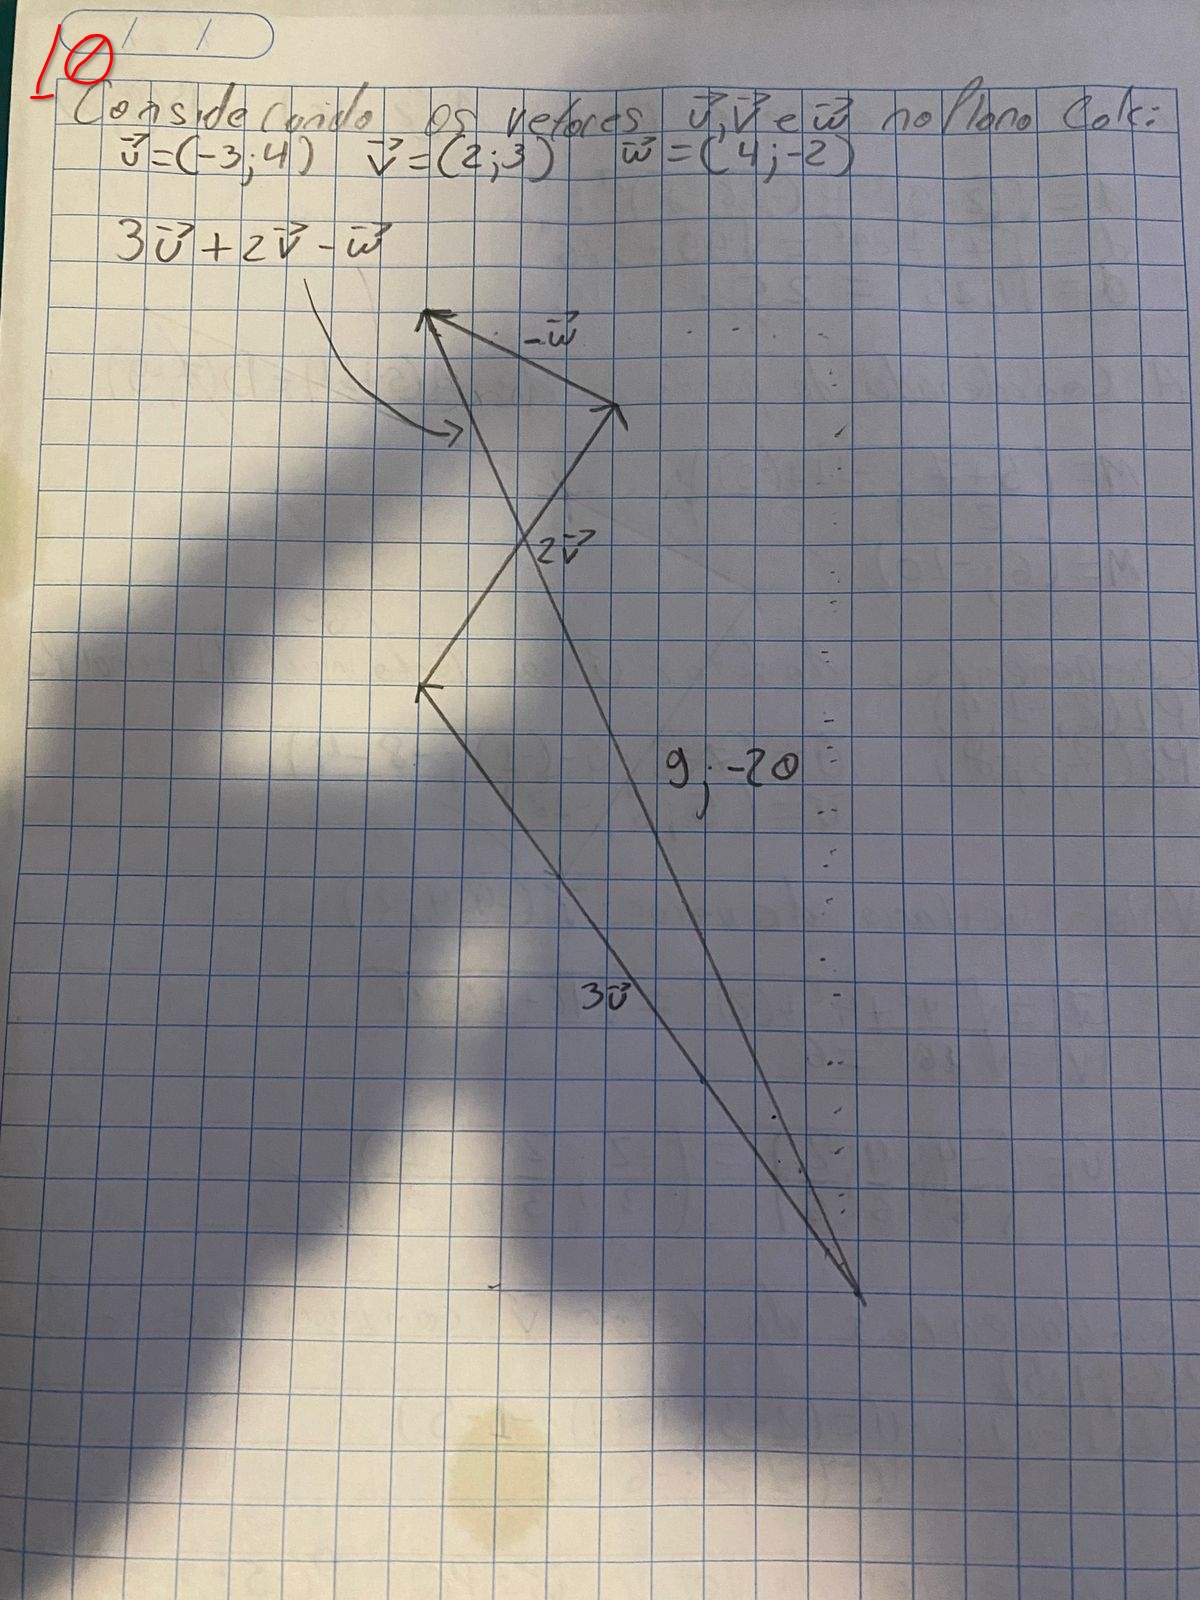 10
/ /
Considerando os vetores u⃗, v⃗ e w⃗ no Plano Calc:
u⃗=(-3;4) v⃗=(2;3) w⃗=(4;-2)
3u⃗+2v⃗-w⃗
-w⃗
2v⃗
9;-20
3u⃗